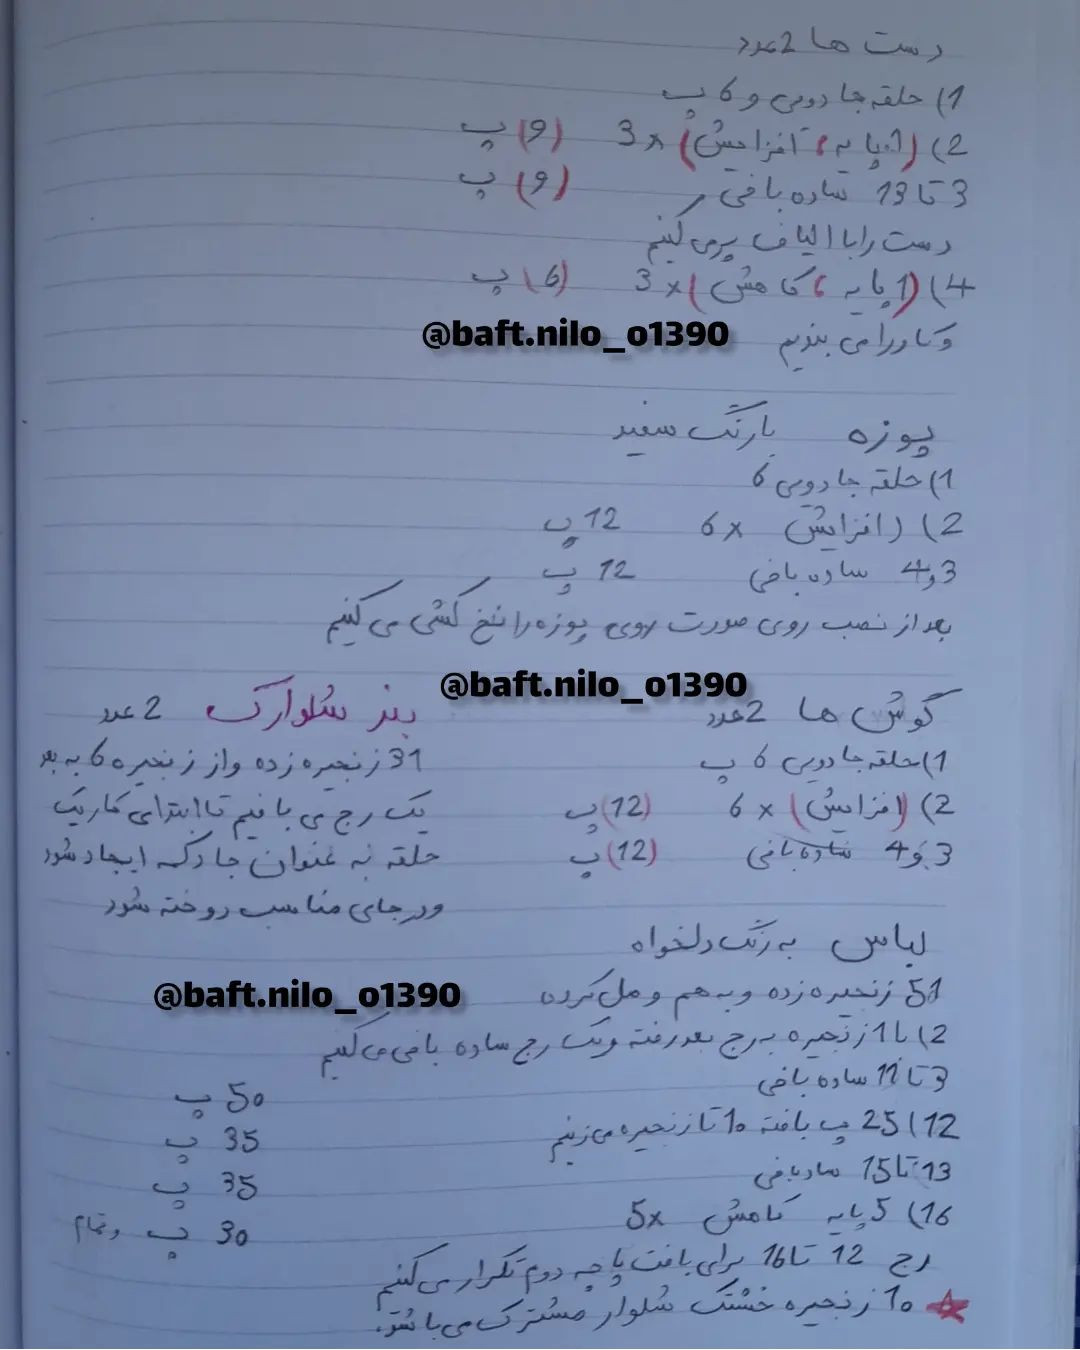 دست ها 2 عدد
1) حلقه جادویی و 6 پ
2) (1 پایه، افزایش) × 3 (9) پ
3 تا 13 ساده بافی (9) پ
دست را با الیاف پر می کنیم
4) (1 پایه، کاهش) × 3 (6) پ
و کاور را می بندیم
@baft.nilo_o1390
پوزه با رنگ سفید
1) حلقه جادویی 6
2) (افزایش × 6 12 پ
3 و 4 ساده بافی 12 پ
بعد از نصب روی صورت روی پوزه را نخ کشی می کنیم
@baft.nilo_o1390
گوش ها 2 عدد
1) حلقه جادویی 6 پ
2) (افزایش) × 6 (12) پ
3 و 4 ساده بافی (12) پ
بند شلوارک 2 عدد
31 زنجیره زده و از زنجیره 6 به بعد
یک رج می بافیم تا ابتدای کار یک
حلقه به عنوان جا دکمه ایجاد شود
و در جای مناسب دوخته شود
لباس به رنگ دلخواه
51 زنجیره زده و به هم وصل کرده
@baft.nilo_o1390
2) با 1 زنجیره به رج بعد رفته و یک رج ساده بافی می کنیم
3 تا 11 ساده بافی 50 پ
12) 25 پ بافته 10 تا زنجیره می زنیم 35 پ
13 تا 15 ساده بافی 35 پ
16) 5 پایه کاهش 5× 30 پ و تمام
رج 12 تا 16 برای بافت پاچه دوم تکرار می کنیم
10 زنجیره خشتک شلوار مشترک می باشد.